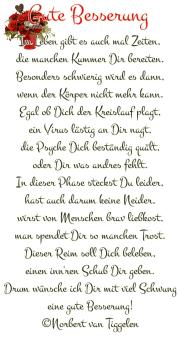 Gute Besserung
Im Leben gibt es auch mal Zeiten,
die manchen Kummer Dir bereiten.
Besonders schwierig wird es dann,
wenn der Körper nicht mehr kann.
Egal ob Dich der Kreislauf plagt,
ein Virus lästig an Dir nagt,
die Psyche Dich beständig quält,
oder Dir was andres fehlt.
In dieser Phase steckst Du leider,
hast auch darum keine Neider,
wirst von Menschen brav liebkost,
man spendet Dir so manchen Trost.
Dieser Reim soll Dich beleben,
einen inn'ren Schub Dir geben.
Drum wünsche ich Dir mit viel Schwung
eine gute Besserung!
©Norbert van Tiggelen